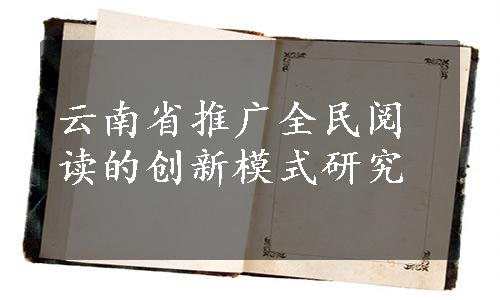 云南省推广全民阅
读的创新模式研究